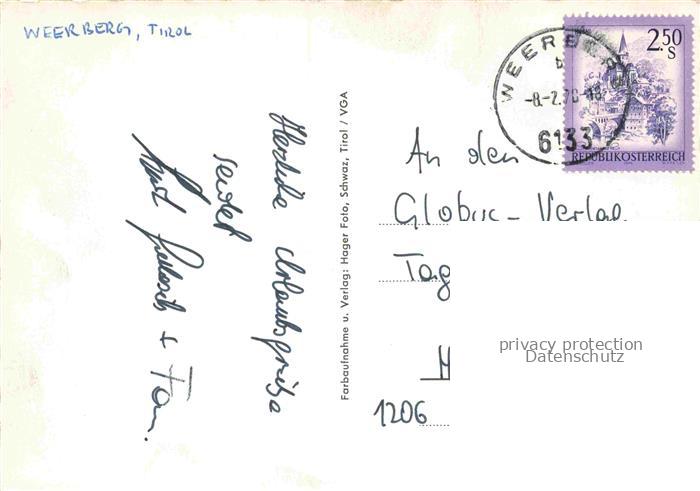 WEERBERG, TIROL
Herzliche Urlaubsgrüße
sendet
+ Fam.
Farbaufnahme u. Verlag: Hager Foto, Schwaz, Tirol / VGA
WEERBERG
b
-8.-2.78-18
6133
2.50
S
REPUBLIK ÖSTERREICH
An den
Globus-Verlag
Tag
H
1206
privacy protection
Datenschutz